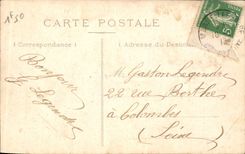 1f50
CARTE POSTALE
Correspondance
Adresse du Destinat
Bonjour
G Legendre
M. Gaston Legendre
22 rue Berthe
à Colombes
(Seine)
5